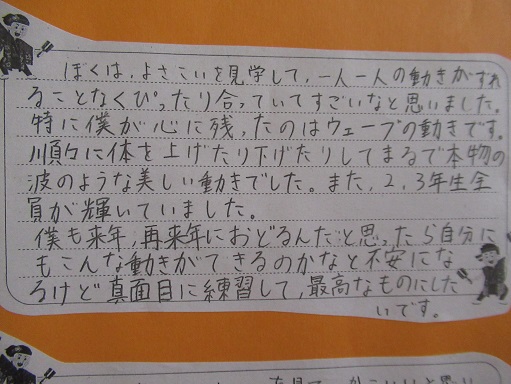 ぼくは、よさこいを見学して、一人一人の動きがずれ
ることなくぴったり合っていてすごいなと思いました。
特に僕が心に残ったのはウェーブの動きです。
順々に体を上げたり下げたりしてまるで本物の
波のような美しい動きでした。また、2、3年生全
員が輝いていました。
僕も来年、再来年におどるんだと思ったら自分に
もこんな動きができるのかなと不安にな
るけど真面目に練習して、最高なものにした
いです。